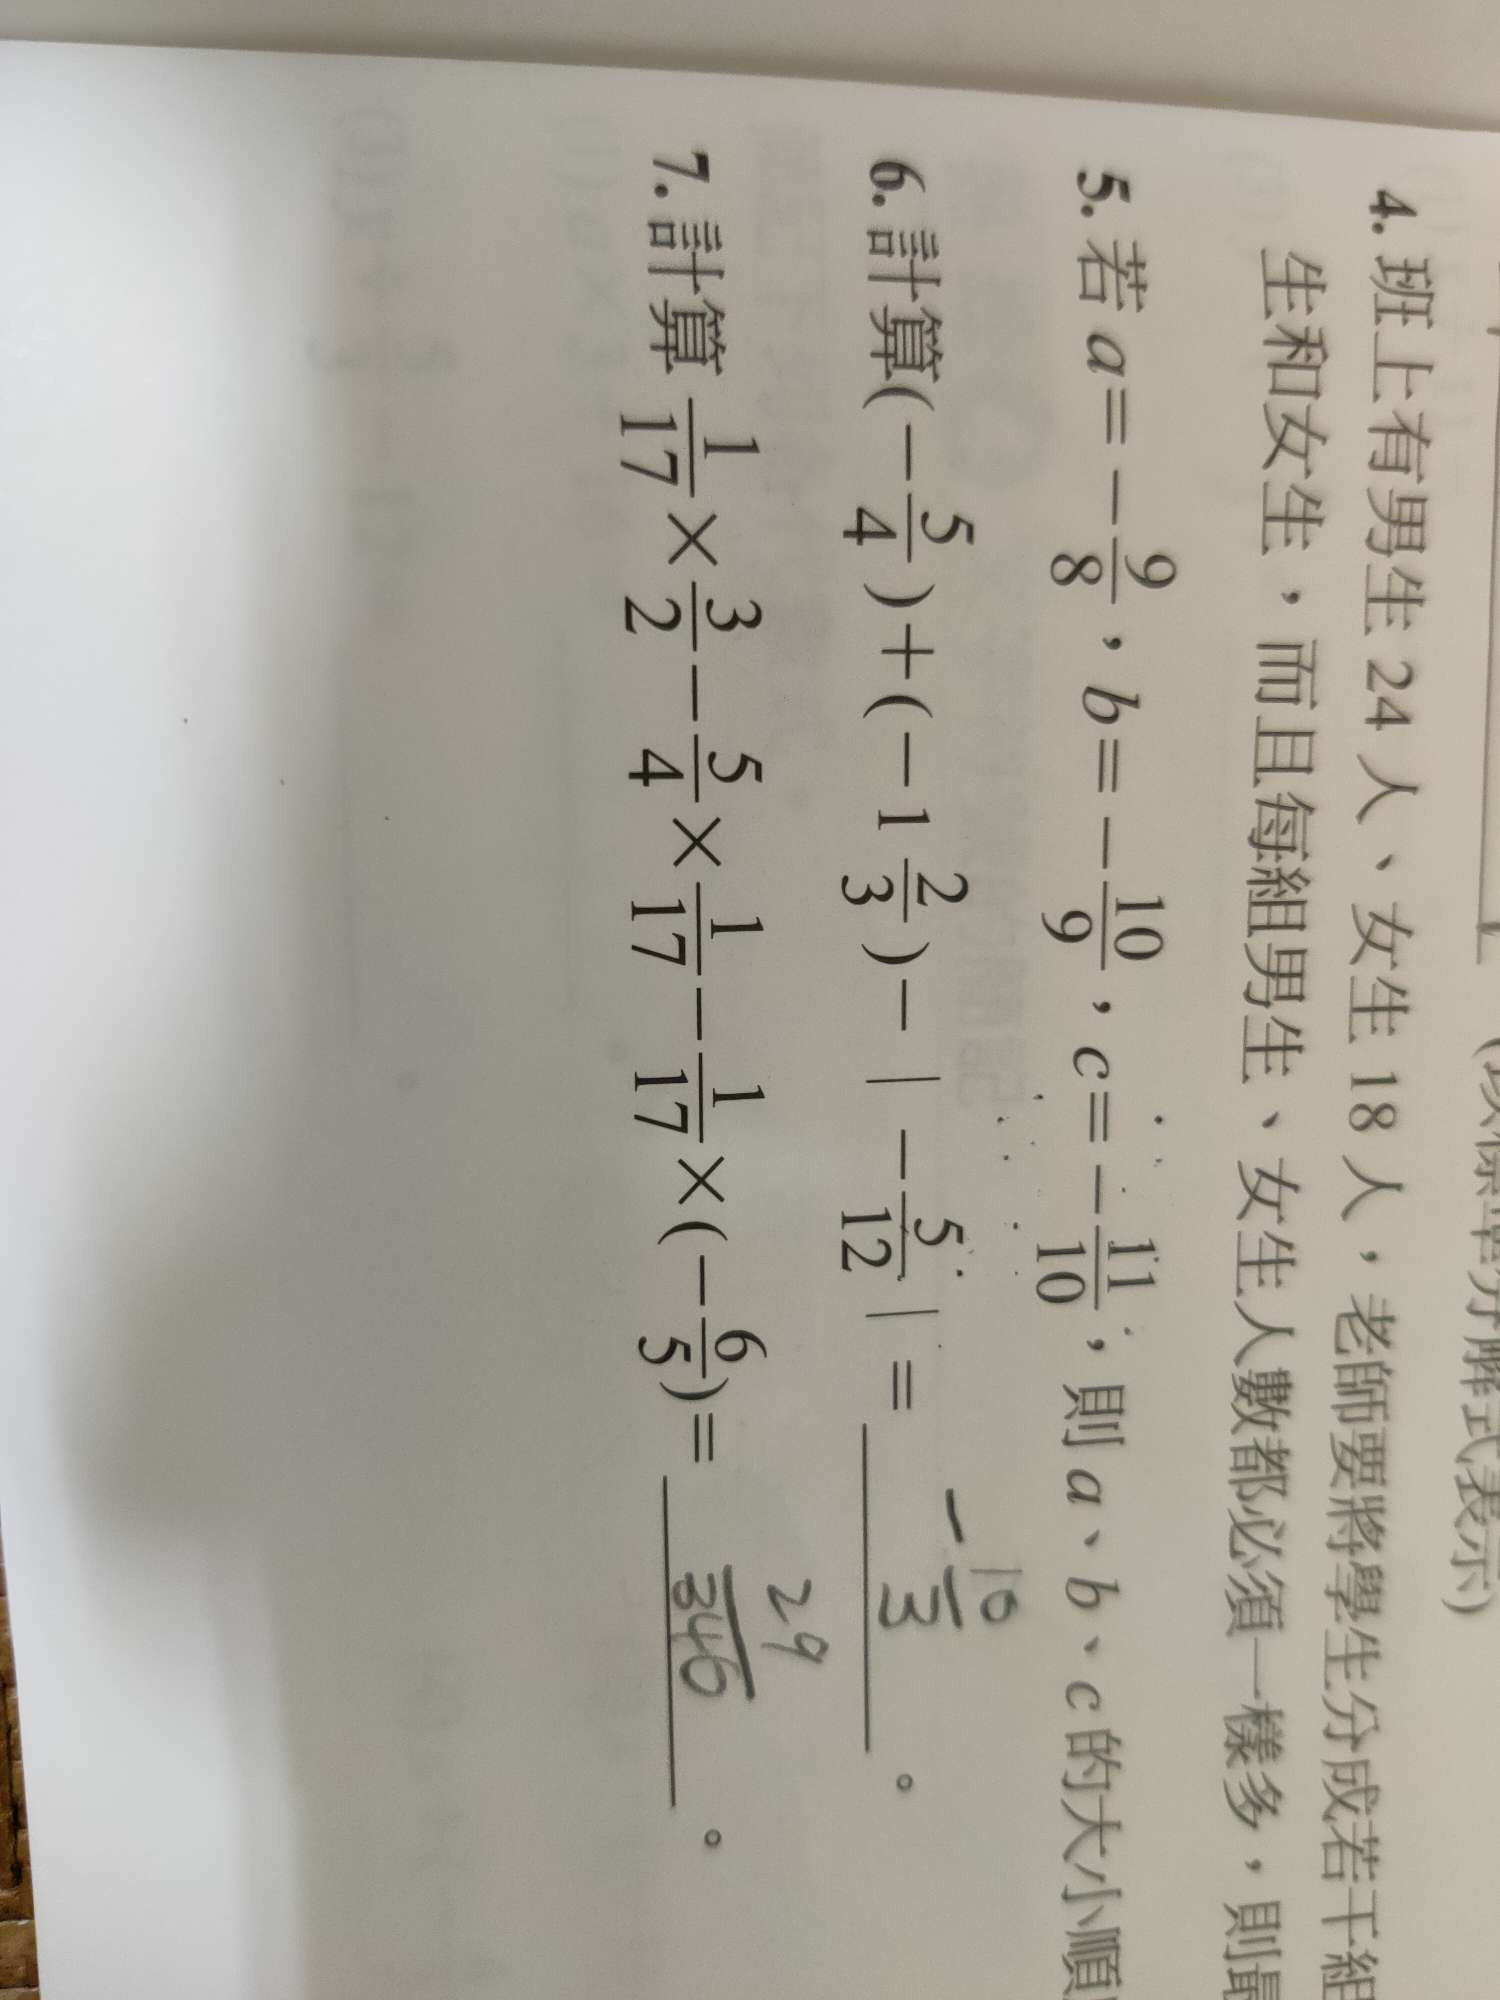 (以標準分解式表示)
4. 班上有男生 24 人、女生 18 人，老師要將學生分成若干組
生和女生，而且每組男生、女生人數都必須一樣多，則最
5. 若 a=-9/8，b=-10/9，c=-11/10，則 a、b、c 的大小順
6. 計算(-5/4)+(-1 2/3)-|-5/12|= -10/3。
7. 計算 1/17×3/2-5/4×1/17-1/17×(-6/5)= 29/340。